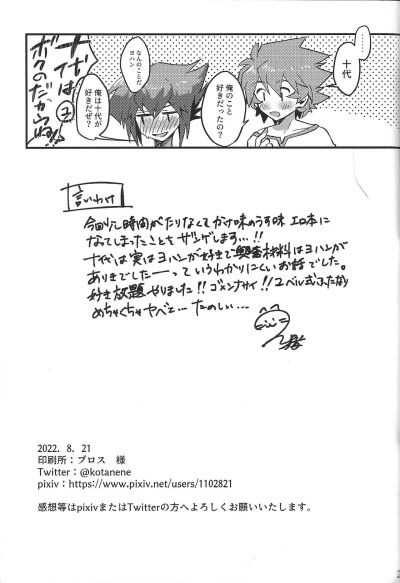 ……
十代
俺のこと
好きだったの？
なんのことだ
ヨハン
俺は十代が
好きだぜ？
十代は
ボクのだからね!!
言いわけ
今回少し時間がたりなくてかけ味のうす味 エロ本に
なってしまったこともザンゲします…!!
十代は実はヨハンが好きで興奮材料はヨハンが
ありきでしたーっていうわかりにくいお話でした。
好き放題やりました!! ゴメンナサイ!! ユベル式ふたなり
めちゃくちゃヤベェ… たのしい…
2022. 8. 21
印刷所：プロス　様
Twitter：@kotanene
pixiv：https://www.pixiv.net/users/1102821
感想等はpixivまたはTwitterの方へよろしくお願いいたします。